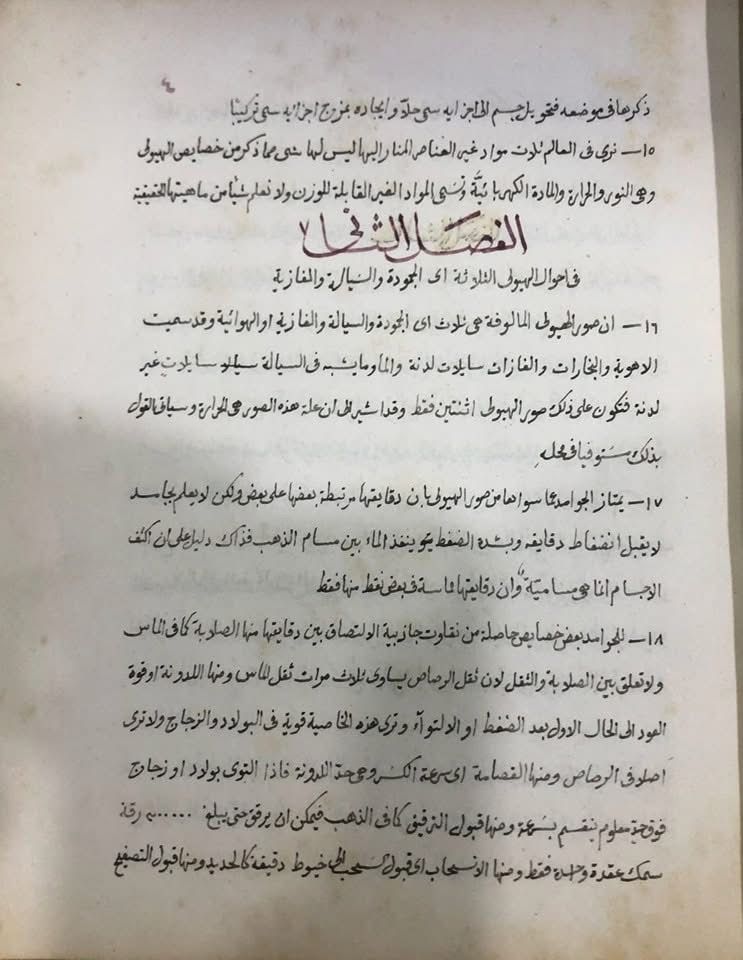 ٤
ذكرها فى موضعه فتحويل جسم الى اجزايه سمى حلاّ وايجاده بمزج اجزايه سمى تركيبًا
١٥ – نرى فى العالم ثلاث مواد غير العناصر المشار اليها ليس لها شى مما ذكر من خصايص الهيولى
وهى النور والحرارة والمادة الكهربائية وتسمى المواد الغير القابلة للوزن ولا نعلم شيأ من ماهيتها الحقيقية
الفصل الثانى
فى احوال الهيولى الثلاثة اى الجمودة والسيالة والغازية
١٦ – ان صور الهيولى المالوفة هى ثلاث اى الجمودة والسيالة والغازية او الهوائية وقد سميت
الاهوية والبخارات والغازات سايلات لدنة والما وما يشبه فى السيالة سايلات غير
لدنة فتكون على ذلك صور الهيولى اثنتين فقط وقد اشير الى ان علة هذه الصور هى الحرارة وسياق القول
بذلك مستوفيا فى محله
١٧ – يمتاز الجوامد عما سواها من صور الهيولى بان دقايقها مرتبطة بعضها على بعض ولكن لا يعلم بجامد
لا يقبل انضغاط دقايقه وبشدة الضغط ينفذ الماء بين مسام الذهب فذاك دليل على ان اكثف
الاجسام انما هى مسامية وان دقايقها مماسة فى بعض نقط منها فقط
١٨ – للجوامد بعض خصايص حاصلة من تفاوت جاذبية الالتصاق بين دقايقها منها الصلابة كما فى الماس
ولا تعلق بين الصلابة والثقل لان ثقل الرصاص يساوى ثلاث مرات ثقل الماس ومنها اللدونة او قوة
العود الى الحال الاول بعد الضغط او الالتوآء وترى هذه الخاصية قوية فى البولاد والزجاج ولا ترى
اصلا فى الرصاص ومنها القصامة اى سرعة الكسر وهى حد اللدونة فاذا التوى بولاد او زجاج
فوق حد معلوم ينقسم بسرعة ومنها قبول الترقيق كما فى الذهب فيمكن ان يرقق حتى يبلغ رقة
سمك عقدة واحدة فقط ومنها الانسحاب اى قبول السحب الى خيوط دقيقة كالحديد ومنها قبول التصفيح